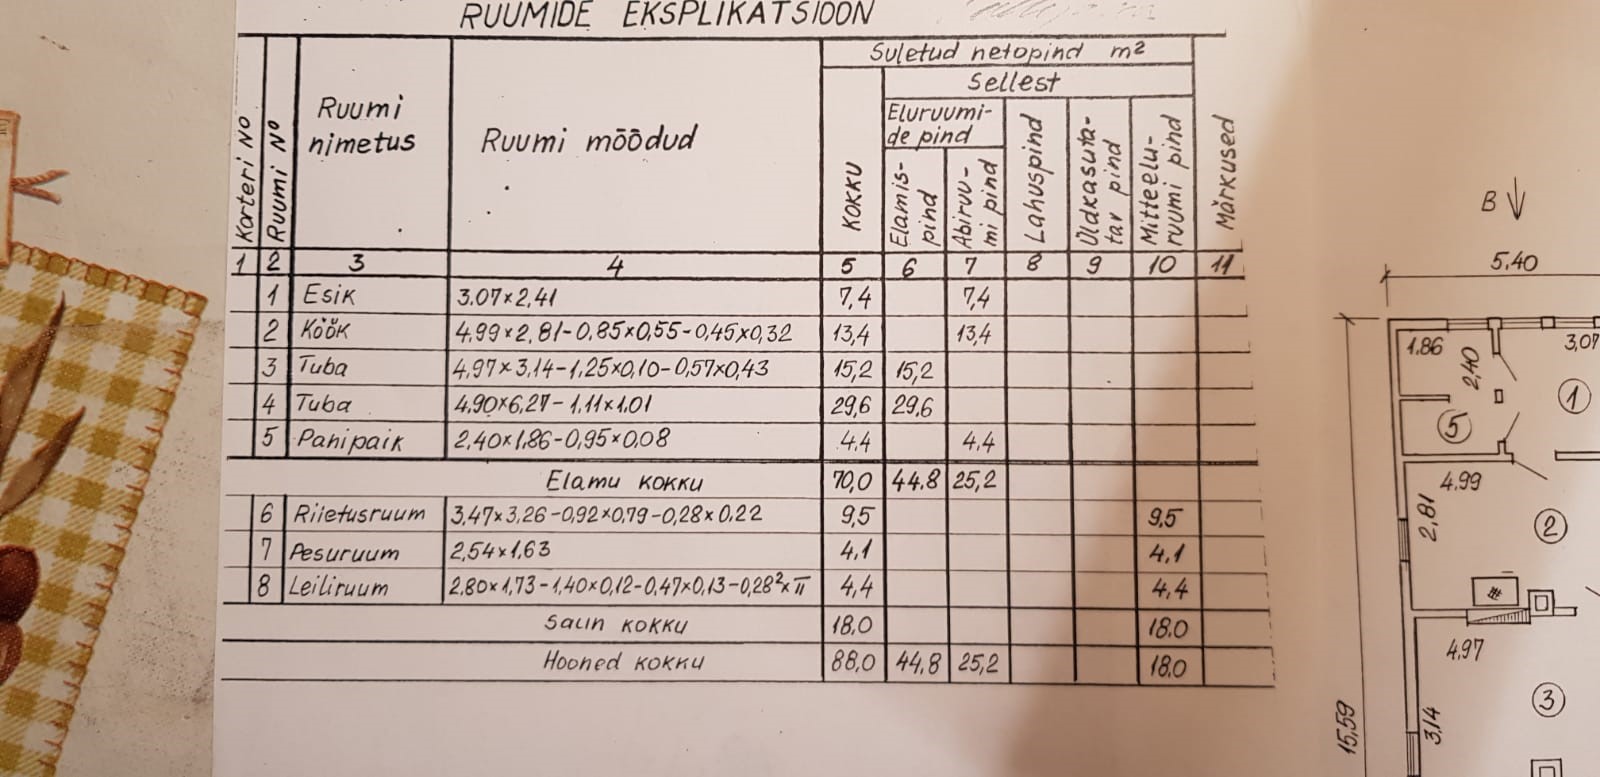 RUUMIDE EKSPLIKATSIOON
Korteri No
Ruumi No
Ruumi nimetus
Ruumi mõõdud
Suletud netopind m²
Sellest
KOKKU
Eluruumi-
de pind
Elamis-
pind
Abiruu-
mi pind
Lahuspind
Üldkasuta-
tav pind
Mitteelu-
ruumi pind
Märkused
1 2 3 4 5 6 7 8 9 10 11
1 Esik 3.07×2,41 7,4 7,4
2 Köök 4,99×2,81-0,85×0,55-0,45×0,32 13,4 13,4
3 Tuba 4,97×3,14-1,25×0,10-0,57×0,43 15,2 15,2
4 Tuba 4,90×6,27-1,11×1,01 29,6 29,6
5 Panipaik 2,40×1,86-0,95×0,08 4,4 4,4
Elamu kokku 70,0 44.8 25,2
6 Riietusruum 3,47×3,26-0,92×0,79-0,28×0,22 9,5 9,5
7 Pesuruum 2,54×1,63 4,1 4,1
8 Leiliruum 2,80×1,73-1,40×0,12-0,47×0,13-0,28²×π 4,4 4,4
Saun kokku 18.0 18.0
Hooned kokku 88,0 44,8 25,2 18.0
B
5,40
1,86
2,40
3,07
1
5
4,99
2,81
2
4,97
3,14
3
15,59